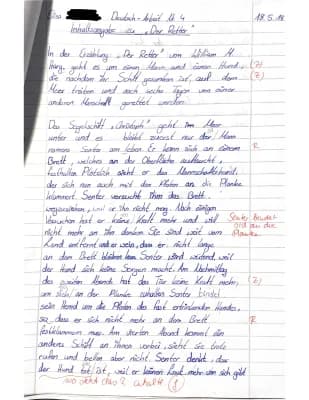 Deutsch-Arbeit Nr. 4
18.5.18
Inhaltsangabe zu „Der Retter"
In der Erzählung „Der Retter" von William M.
Harg, geht es um einen Mann und einen Hund,
(Z)
die nachdem ihr Schiff gesunken ist, auf dem
(Z)
Meer treiben und nach sechs Tagen von einer
anderen Mannschaft gerettet werden.
Das Segelschiff „Christoph" geht im Meer
unter und es bleibt zuerst nur der Mann
namens Senter am Leben. Er kann sich an einem
R
Brett, welches an der Oberfläche auftaucht,
festhalten. Plötzlich sieht er den Mannschaftshund,
der sich nun auch mit den Pfoten an die Planke
klammert. Senter versucht ihm das Brett
wegzuziehen, weil er ihn nicht mag. Nach einigen
Versuchen hat er keine Kraft mehr und will
Senter
nicht mehr an ihn denken. Sie sind weit vom
an die
Planke
Land entfernt und er weiß, dass er nicht lange
an dem Brett bleiben kann. Senter wird wütend, weil
der Hund sich keine Sorgen macht. Am Abend
des zweiten Abends hat das Tier keine Kraft mehr,
(Z)
um sich an der Planke zu halten. Senter bindet
sein Hemd um die Pfoten des fast ertrinkenden Hundes,
so dass er sich nicht mehr an dem Brett
R
festklammern muss. Am vierten Abend kommt ein
anderes Schiff an ihnen vorbei, sieht sie trotz
rufen und bellen aber nicht. Senter denkt, das
der Hund tot ist, weil er keinen Laut mehr von sich gibt
wo steht das?